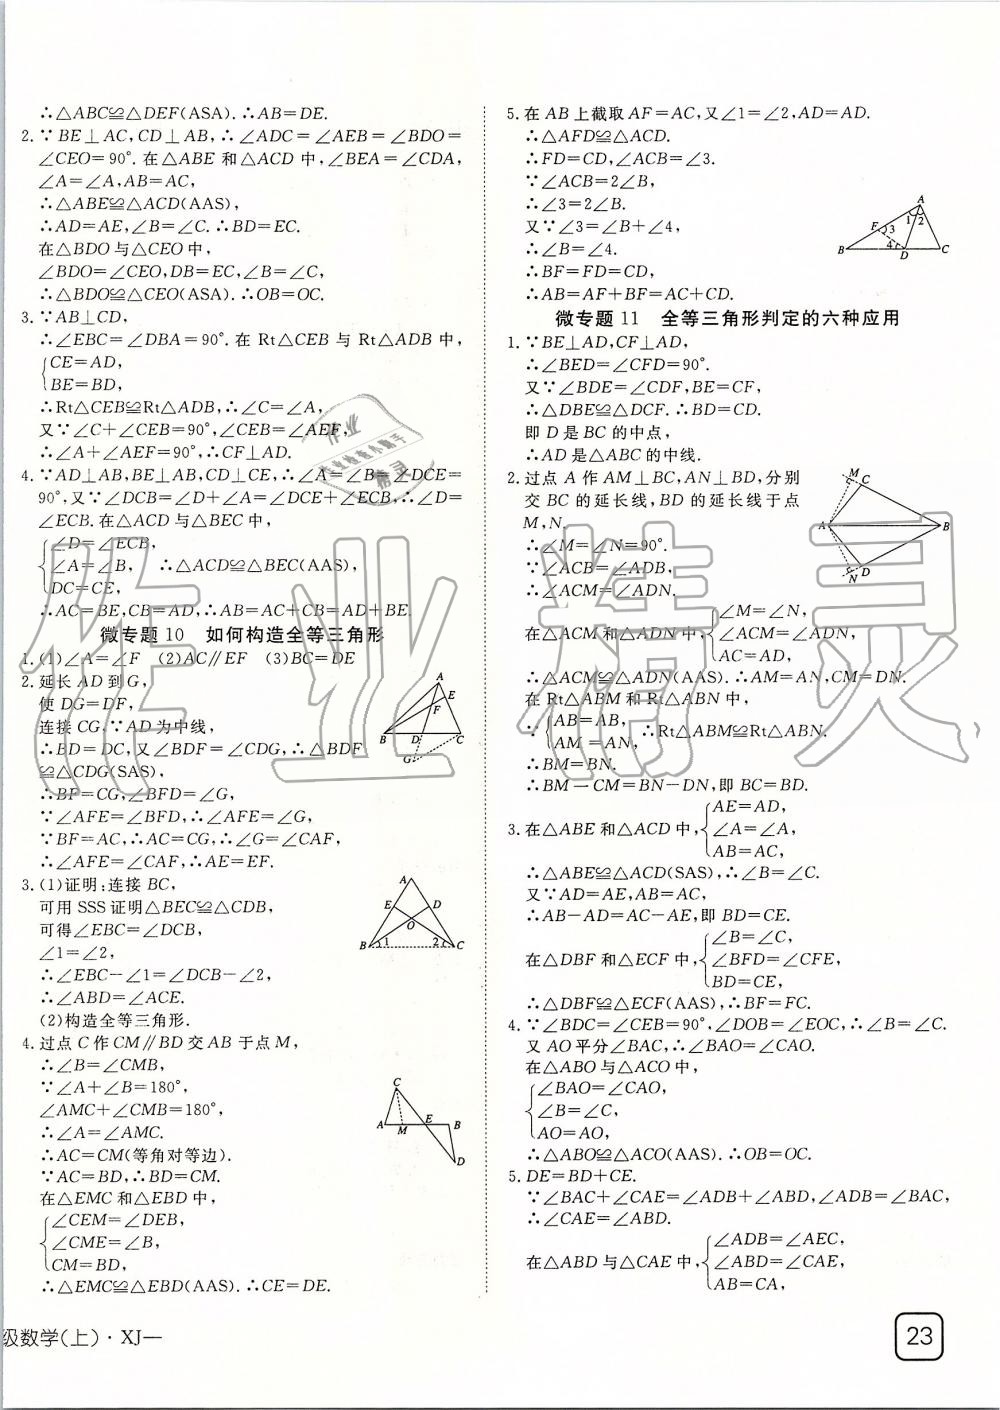 ∴△ABC≌△DEF(ASA).∴AB=DE.
2.∵BE⊥AC,CD⊥AB,∴∠ADC=∠AEB=∠BDO=
∠CEO=90°.在△ABE和△ACD中,∠BEA=∠CDA,
∠A=∠A,AB=AC,
∴△ABE≌△ACD(AAS),
∴AD=AE,∠B=∠C.∴BD=EC.
在△BDO与△CEO中,
∠BDO=∠CEO,DB=EC,∠B=∠C,
∴△BDO≌△CEO(ASA).∴OB=OC.
3.∵AB⊥CD,
∴∠EBC=∠DBA=90°.在Rt△CEB与Rt△ADB中,
CE=AD,
BE=BD,
∴Rt△CEB≌Rt△ADB,∴∠C=∠A,
又∵∠C+∠CEB=90°,∠CEB=∠AEF,
∴∠A+∠AEF=90°,∴CF⊥AD.
4.∵AD⊥AB,BE⊥AB,CD⊥CE,∴∠A=∠B=∠DCE=
90°,又∵∠DCB=∠D+∠A=∠DCE+∠ECB,∴∠D=
∠ECB.在△ACD与△BEC中,
∠D=∠ECB,
∠A=∠B, ∴△ACD≌△BEC(AAS),
DC=CE,
∴AC=BE,CB=AD,∴AB=AC+CB=AD+BE.
微专题10 如何构造全等三角形
1.(1)∠A=∠F (2)AC∥EF (3)BC=DE
2.延长AD到G,
使DG=DF,
连接CG,∵AD为中线,
∴BD=DC,又∠BDF=∠CDG,∴△BDF
≌△CDG(SAS),
∴BF=CG,∠BFD=∠G,
∵∠AFE=∠BFD,∴∠AFE=∠G,
∵BF=AC,∴AC=CG,∴∠G=∠CAF,
∴∠AFE=∠CAF,∴AE=EF.
A
E
F
B D C
G
3.(1)证明:连接BC,
可用SSS证明△BEC≌△CDB,
可得∠EBC=∠DCB,
∠1=∠2,
∴∠EBC-∠1=∠DCB-∠2,
∴∠ABD=∠ACE.
(2)构造全等三角形.
A
E D
O
B 1 2 C
4.过点C作CM∥BD交AB于点M,
∴∠B=∠CMB,
∵∠A+∠B=180°,
∠AMC+∠CMB=180°,
∴∠A=∠AMC.
∴AC=CM(等角对等边).
∵AC=BD,∴BD=CM.
在△EMC和△EBD中,
∠CEM=∠DEB,
∠CME=∠B,
CM=BD,
∴△EMC≌△EBD(AAS).∴CE=DE.
C
A M E B
D
级数学(上)·XJ—
5.在AB上截取AF=AC,又∠1=∠2,AD=AD.
∴△AFD≌△ACD.
∴FD=CD,∠ACB=∠3.
∵∠ACB=2∠B,
∴∠3=2∠B.
又∵∠3=∠B+∠4,
∴∠B=∠4.
∴BF=FD=CD,
∴AB=AF+BF=AC+CD.
A
1 2
F 3
4
B D C
微专题11 全等三角形判定的六种应用
1.∵BE⊥AD,CF⊥AD,
∴∠BED=∠CFD=90°.
又∵∠BDE=∠CDF,BE=CF,
∴△DBE≌△DCF.∴BD=CD.
即D是BC的中点,
∴AD是△ABC的中线.
2.过点A作AM⊥BC,AN⊥BD,分别
交BC的延长线,BD的延长线于点
M,N,
∴∠M=∠N=90°.
∵∠ACB=∠ADB,
∴∠ACM=∠ADN.
∠M=∠N,
在△ACM和△ADN中,∠ACM=∠ADN,
AC=AD,
∴△ACM≌△ADN(AAS).∴AM=AN,CM=DN.
在Rt△ABM和Rt△ABN中,
∵AB=AB,
AM=AN, ∴Rt△ABM≌Rt△ABN.
∴BM=BN.
∴BM-CM=BN-DN,即BC=BD.
M C
A B
N D
AE=AD,
3.在△ABE和△ACD中,∠A=∠A,
AB=AC,
∴△ABE≌△ACD(SAS),∴∠B=∠C.
又∵AD=AE,AB=AC,
∴AB-AD=AC-AE,即BD=CE.
∠B=∠C,
在△DBF和△ECF中,∠BFD=∠CFE,
BD=CE,
∴△DBF≌△ECF(AAS),∴BF=FC.
4.∵∠BDC=∠CEB=90°,∠DOB=∠EOC,∴∠B=∠C.
又AO平分∠BAC,∴∠BAO=∠CAO.
在△ABO与△ACO中,
∠BAO=∠CAO,
∠B=∠C,
AO=AO,
∴△ABO≌△ACO(AAS).∴OB=OC.
5.DE=BD+CE.
∵∠BAC+∠CAE=∠ADB+∠ABD,∠ADB=∠BAC,
∴∠CAE=∠ABD.
∠ADB=∠AEC,
在△ABD与△CAE中,∠ABD=∠CAE,
AB=CA,
23
作业精灵